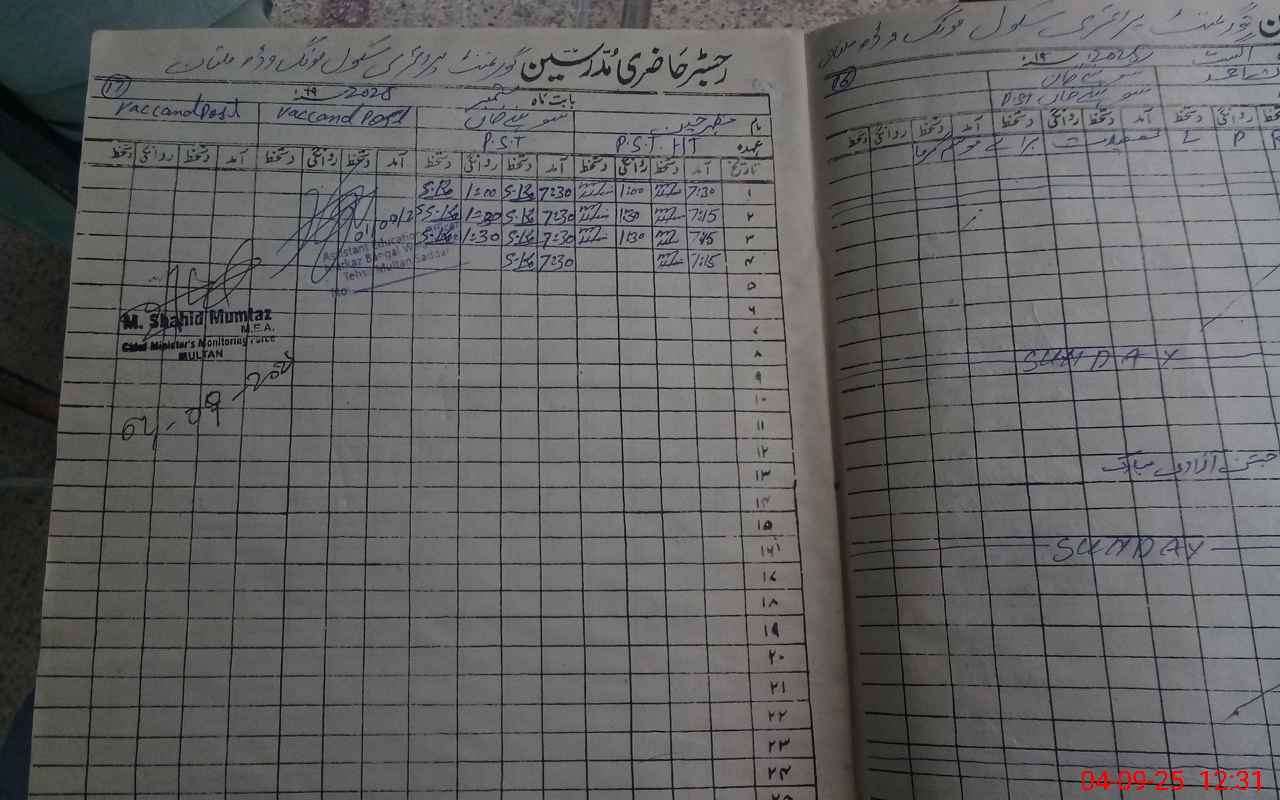 رجسٹر حاضری مُدرسین گورنمنٹ پرائمری سکول مونگ وڈھ ملتان
(17)
بابت ماہ ستمبر 2025 ۱۹ سنہ
نام مظہر حسین Vaccand Post Vaccand Post
عہدہ P.S.T. HT P.S.T
تاریخ آمد دستخط روانگی دستخط آمد دستخط روانگی دستخط آمد دستخط روانگی دستخط آمد دستخط روانگی دستخط
۱ 7:30 1:00 7:30 1:00
۲ 7:15 1:30 7:30 1:30
۳ 7:45 1:30 7:30 1:30
۴ 7:15 7:30
۵
۶
۷
۸
۹
۱۰
۱۱
۱۲
۱۳
۱۴
۱۵
۱۶
۱۷
۱۸
۱۹
۲۰
۲۱
۲۲
۲۳
۲۴
۲۵
Assistant Education
Markaz Bangal W
Teh: Multan Saddar
No
M. Shahid Mumtaz
M.E.A.
Chief Minister's Monitoring Force
MULTAN
04-09-2025
گورنمنٹ پرائمری سکول مونگ وڈھ ملتان
(16)
اگست 2025 ۱۹ سنہ
P.S.T
آمد دستخط روانگی دستخط آمد دستخط روانگی دستخط
تعطیلات برائے موسم گرما
SUNDAY
جشن آزادی مبارک
SUNDAY
04-09-25 12:31